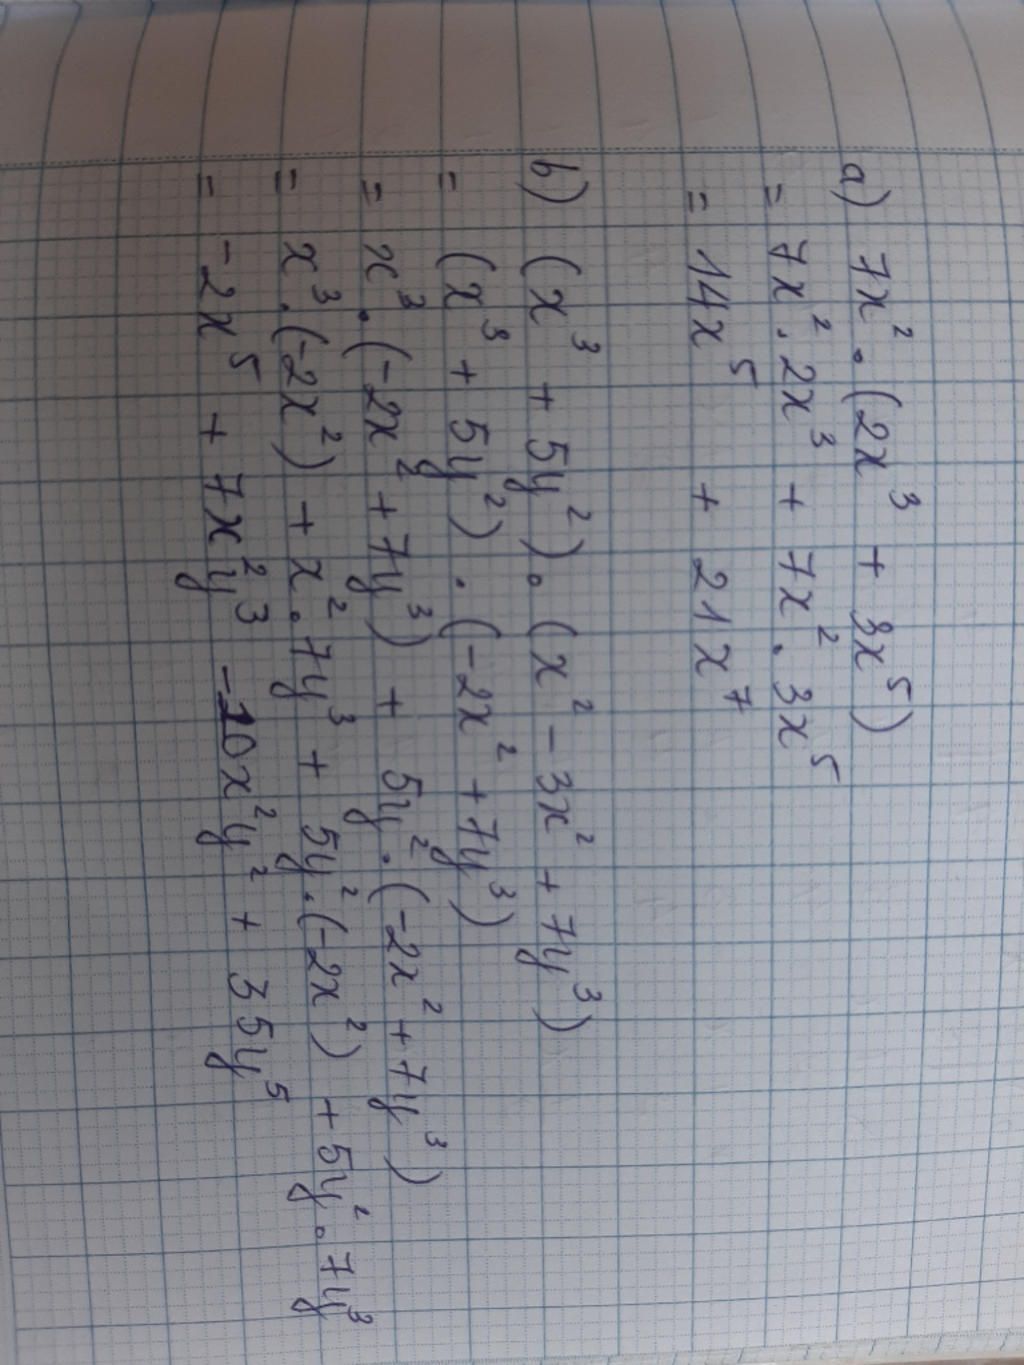 a) 7x² . (2x³ + 3x⁵)
= 7x² . 2x³ + 7x² . 3x⁵
= 14x⁵ + 21x⁷
b) (x³ + 5y²) . (x² - 3x² + 7y³)
= (x³ + 5y²) . (-2x² + 7y³)
= x³ . (-2x² + 7y³) + 5y² . (-2x² + 7y³)
= x³ . (-2x²) + x² . 7y³ + 5y² . (-2x²) + 5y² . 7y³
= -2x⁵ + 7x²y³ - 10x²y² + 35y⁵